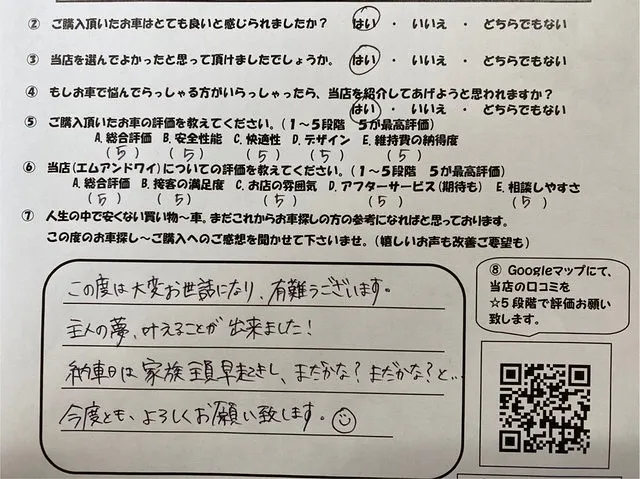 ② ご購入頂いたお車はとても良いと感じられましたか？ はい ・ いいえ ・ どちらでもない
③ 当店を選んでよかったと思って頂けましたでしょうか。 はい ・ いいえ ・ どちらでもない
④ もしお車で悩んでらっしゃる方がいらっしゃったら、当店を紹介してあげようと思われますか？
はい ・ いいえ ・ どちらでもない
⑤ ご購入頂いたお車の評価を教えてください。（１～５段階 ５が最高評価）
A. 総合評価 B. 安全性能 C. 快適性 D. デザイン E. 維持費の納得度
（5） （5） （5） （5） （5）
⑥ 当店(エムアンドワイ)についての評価を教えてください。（１～５段階 ５が最高評価）
A. 総合評価 B. 接客の満足度 C. お店の雰囲気 D. アフターサービス(期待も) E. 相談しやすさ
（5） （5） （5） （5） （5）
⑦ 人生の中で安くない買い物～車。まだこれからお車探しの方の参考になればと思っております。
この度のお車探し～ご購入へのご感想を聞かせて下さいませ。（嬉しいお声も改善ご要望も）
この度は大変お世話になり、有難うございます。
主人の夢、叶えることが出来ました！
納車日は家族全員早起きし、まだかな？まだかな？と…
今度とも、よろしくお願い致します。
⑧ Googleマップにて、
当店の口コミを
☆５段階で評価お願い
致します。